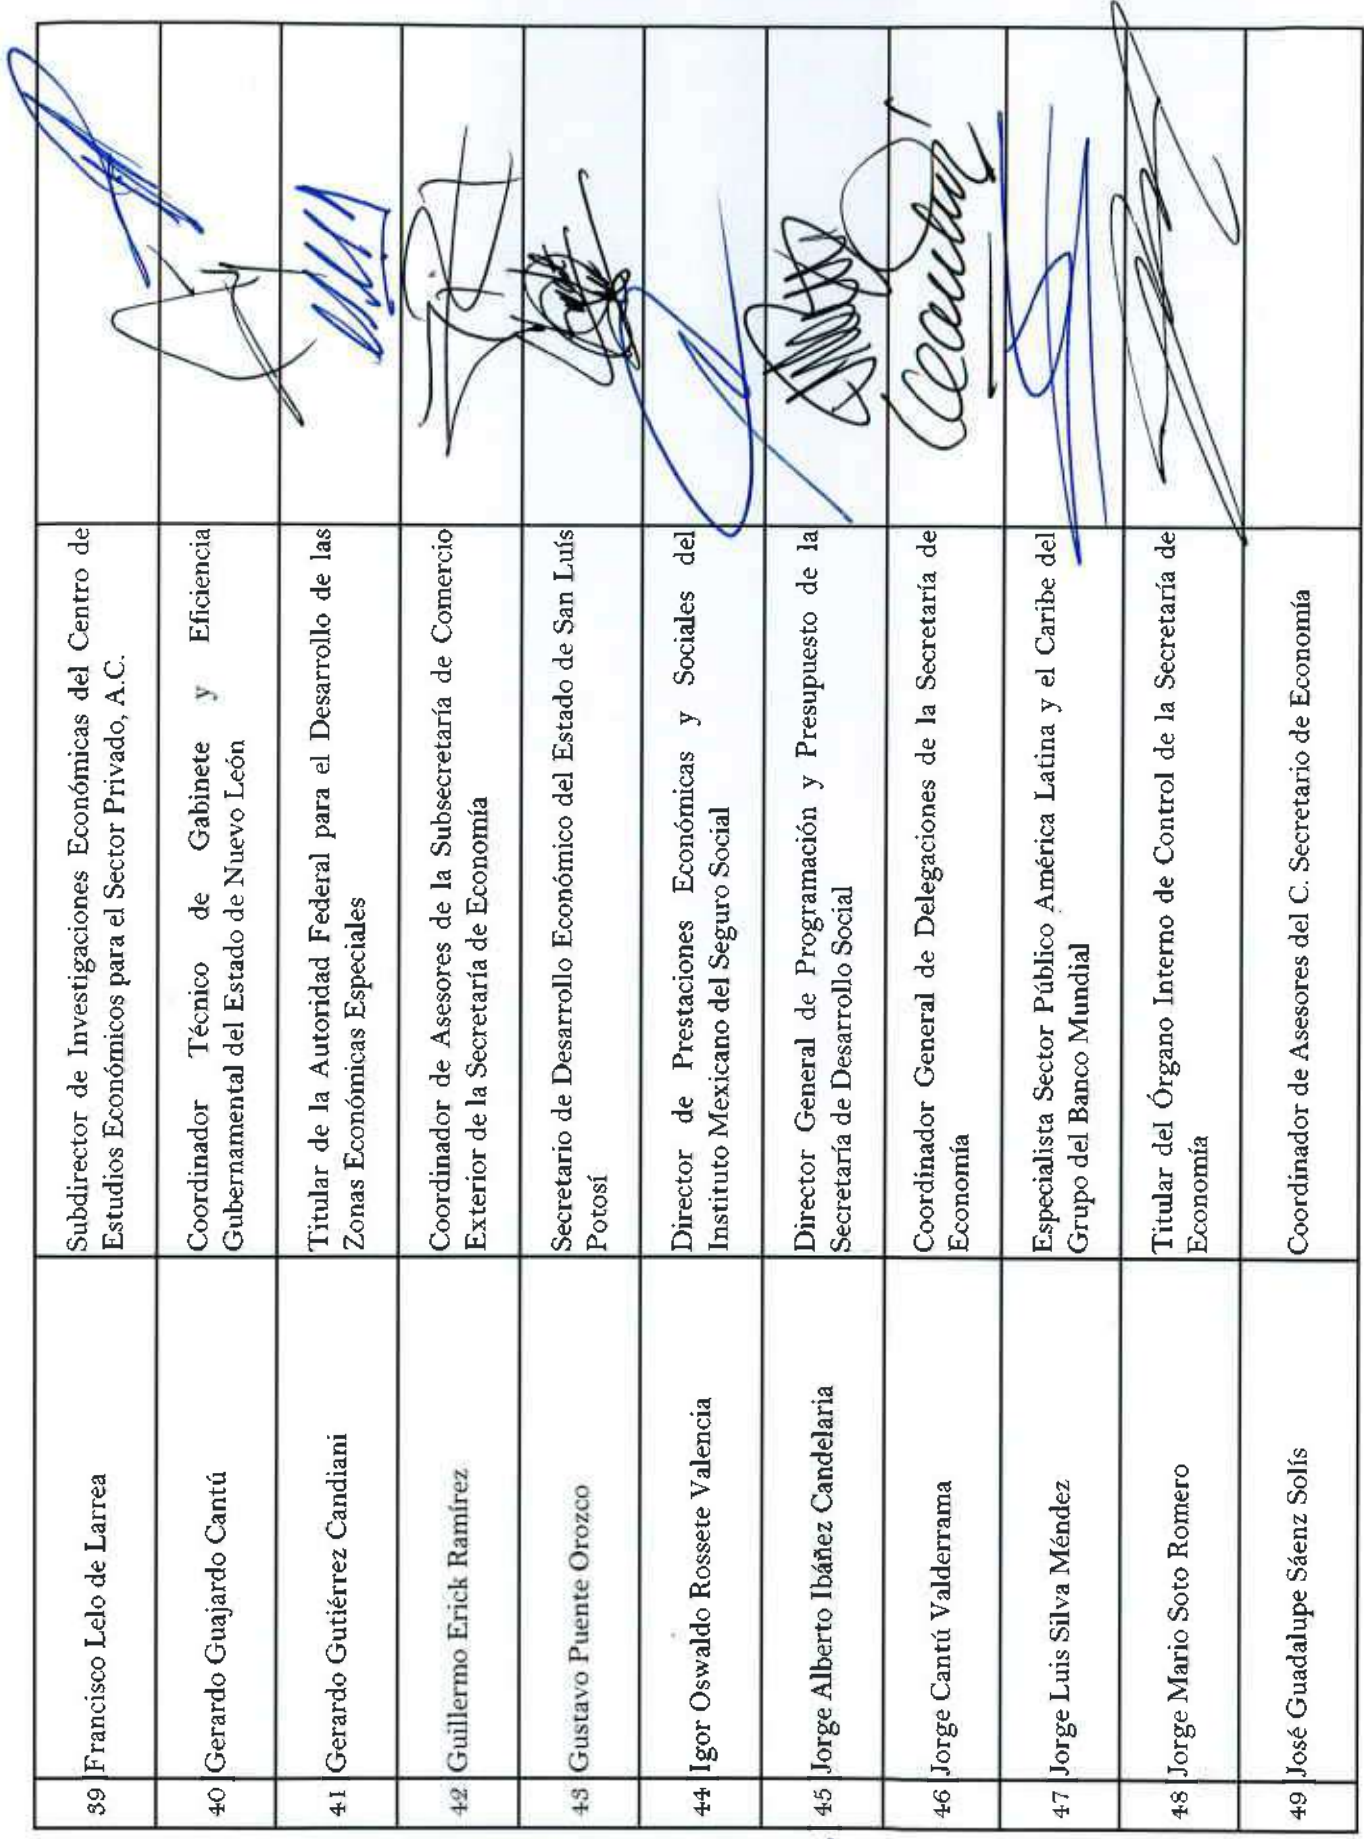 39 Francisco Lelo de Larrea
Subdirector de Investigaciones Económicas del Centro de
Estudios Económicos para el Sector Privado, A.C.
40 Gerardo Guajardo Cantú
Coordinador Técnico de Gabinete y Eficiencia
Gubernamental del Estado de Nuevo León
41 Gerardo Gutiérrez Candiani
Titular de la Autoridad Federal para el Desarrollo de las
Zonas Económicas Especiales
42 Guillermo Erick Ramírez
Coordinador de Asesores de la Subsecretaría de Comercio
Exterior de la Secretaría de Economía
43 Gustavo Puente Orozco
Secretario de Desarrollo Económico del Estado de San Luís
Potosí
44 Igor Oswaldo Rossete Valencia
Director de Prestaciones Económicas y Sociales del
Instituto Mexicano del Seguro Social
45 Jorge Alberto Ibáñez Candelaria
Director General de Programación y Presupuesto de la
Secretaría de Desarrollo Social
46 Jorge Cantú Valderrama
Coordinador General de Delegaciones de la Secretaría de
Economía
47 Jorge Luis Silva Méndez
Especialista Sector Público América Latina y el Caribe del
Grupo del Banco Mundial
48 Jorge Mario Soto Romero
Titular del Órgano Interno de Control de la Secretaría de
Economía
49 José Guadalupe Sáenz Solís
Coordinador de Asesores del C. Secretario de Economía